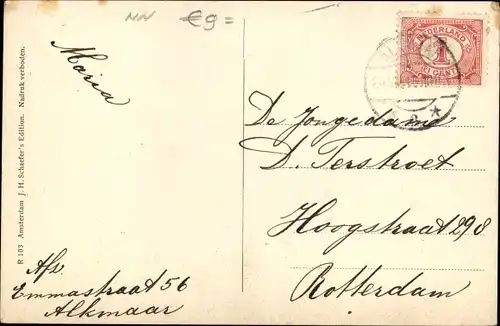 NN
€9=
NEDERLAND
1
CENT
Maria
R 103 Amsterdam J. H. Schaefer's Edition. Nadruk verboden.
De Jongedame
D. Terstroet
Hoogstraat 298
Rotterdam
Afs.
Emmastraat 56
Alkmaar